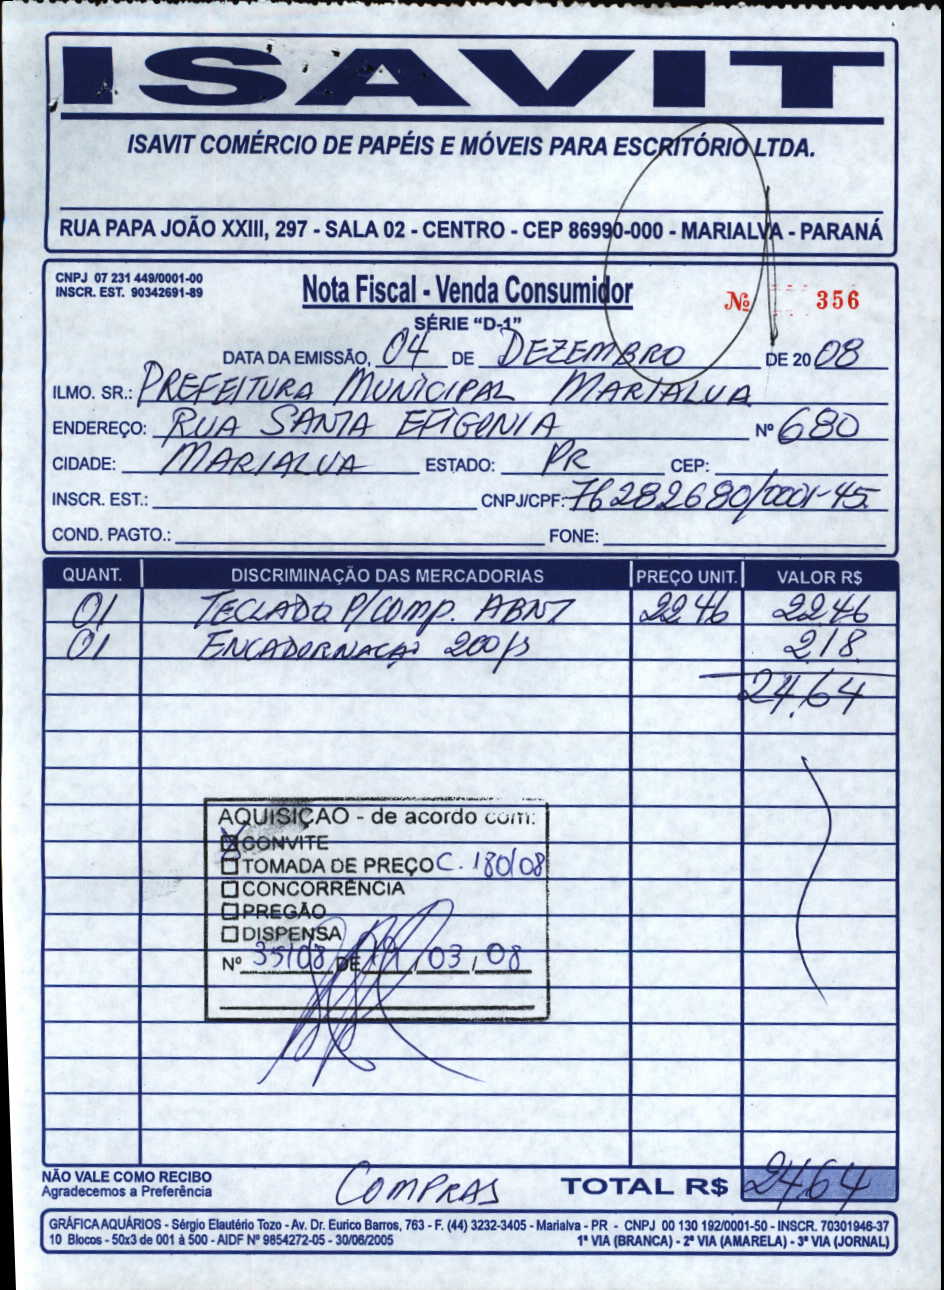 ISAVIT
ISAVIT COMÉRCIO DE PAPÉIS E MÓVEIS PARA ESCRITÓRIO LTDA.
RUA PAPA JOÃO XXIII, 297 - SALA 02 - CENTRO - CEP 86990-000 - MARIALVA - PARANÁ
CNPJ 07 231 449/0001-00
INSCR. EST. 90342691-89
Nota Fiscal - Venda Consumidor
Nº 356
SÉRIE “D-1”
DATA DA EMISSÃO, 04 DE DEZEMBRO DE 20 08
ILMO. SR.: PREFEITURA MUNICIPAL MARIALVA
ENDEREÇO: RUA SANTA EFIGONIA Nº 680
CIDADE: MARIALVA ESTADO: PR CEP:
INSCR. EST.: CNPJ/CPF: 76282680/0001-45
COND. PAGTO.: FONE:
QUANT. DISCRIMINAÇÃO DAS MERCADORIAS PREÇO UNIT. VALOR R$
01 TECLADO P/COMP. ABNT 22.46 22.46
01 ENCADORNAÇÃO 200 2.18
24.64
AQUISIÇÃO - de acordo com:
CONVITE
TOMADA DE PREÇO C. 180/08
CONCORRÊNCIA
PREGÃO
DISPENSA
Nº 35/08 DE /03/08
NÃO VALE COMO RECIBO
Agradecemos a Preferência
COMPRAS
TOTAL R$ 24.64
GRÁFICA AQUÁRIOS - Sérgio Elautério Tozo - Av. Dr. Eurico Barros, 763 - F. (44) 3232-3405 - Marialva - PR - CNPJ 00 130 192/0001-50 - INSCR. 70301946-37
10 Blocos - 50x3 de 001 à 500 - AIDF Nº 9854272-05 - 30/06/2005 1ª VIA (BRANCA) - 2ª VIA (AMARELA) - 3ª VIA (JORNAL)